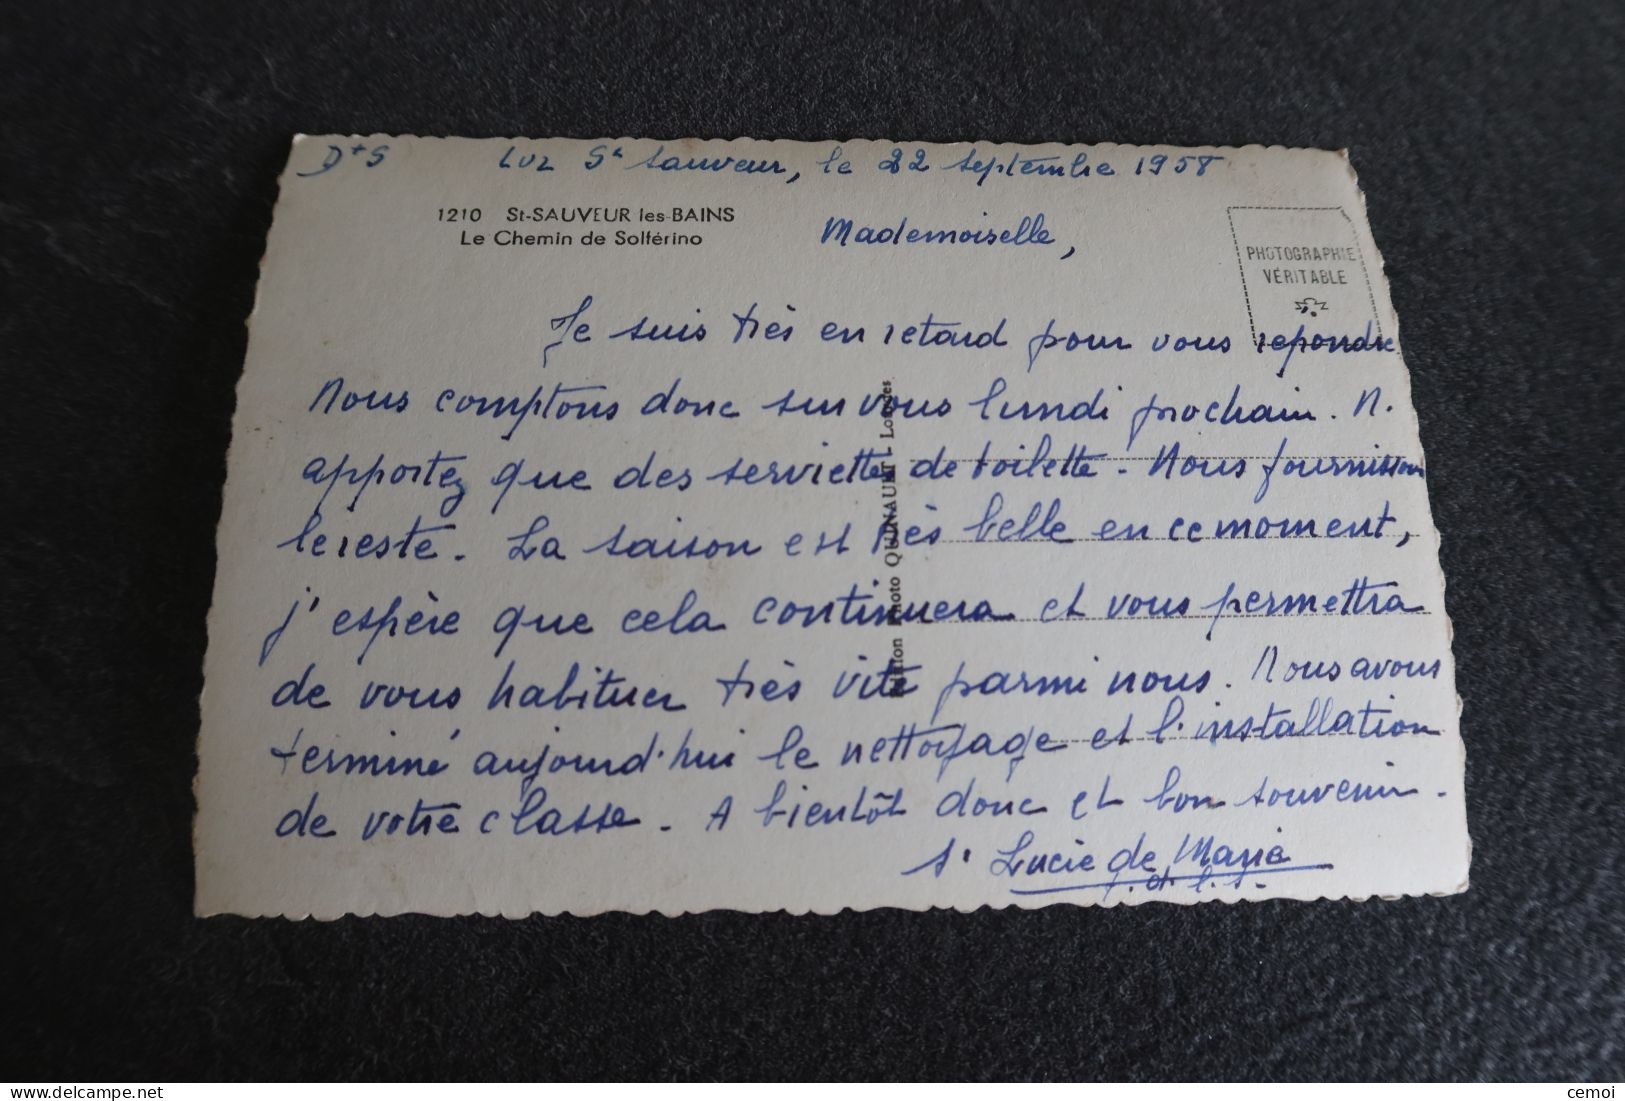 D+S Luz St Sauveur, le 22 septembre 1958
1210 St-SAUVEUR les-BAINS
Le Chemin de Solférino
Mademoiselle,
PHOTOGRAPHIE
VÉRITABLE
Je suis très en retard pour vous repondre
Nous comptons donc sur vous lundi prochain. N.
apportez que des serviettes de toilette. Nous fournissons
le reste. La saison est très belle en ce moment,
j'espère que cela continuera et vous permettra
de vous habituer très vite parmi nous. Nous avons
terminé aujourd'hui le nettoyage et l'installation
de votre classe. A bientôt donc et bon souvenir.
Sr Lucie de Marie
Edition Photo QUINAULT - Lourdes
cemoi